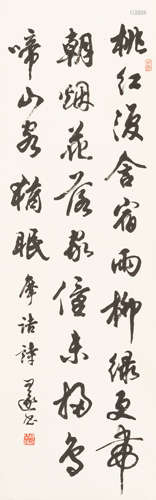 桃紅復含宿雨柳綠更帶
朝烟花落家僮未掃鳥
啼山客猶眠 摩詰詩